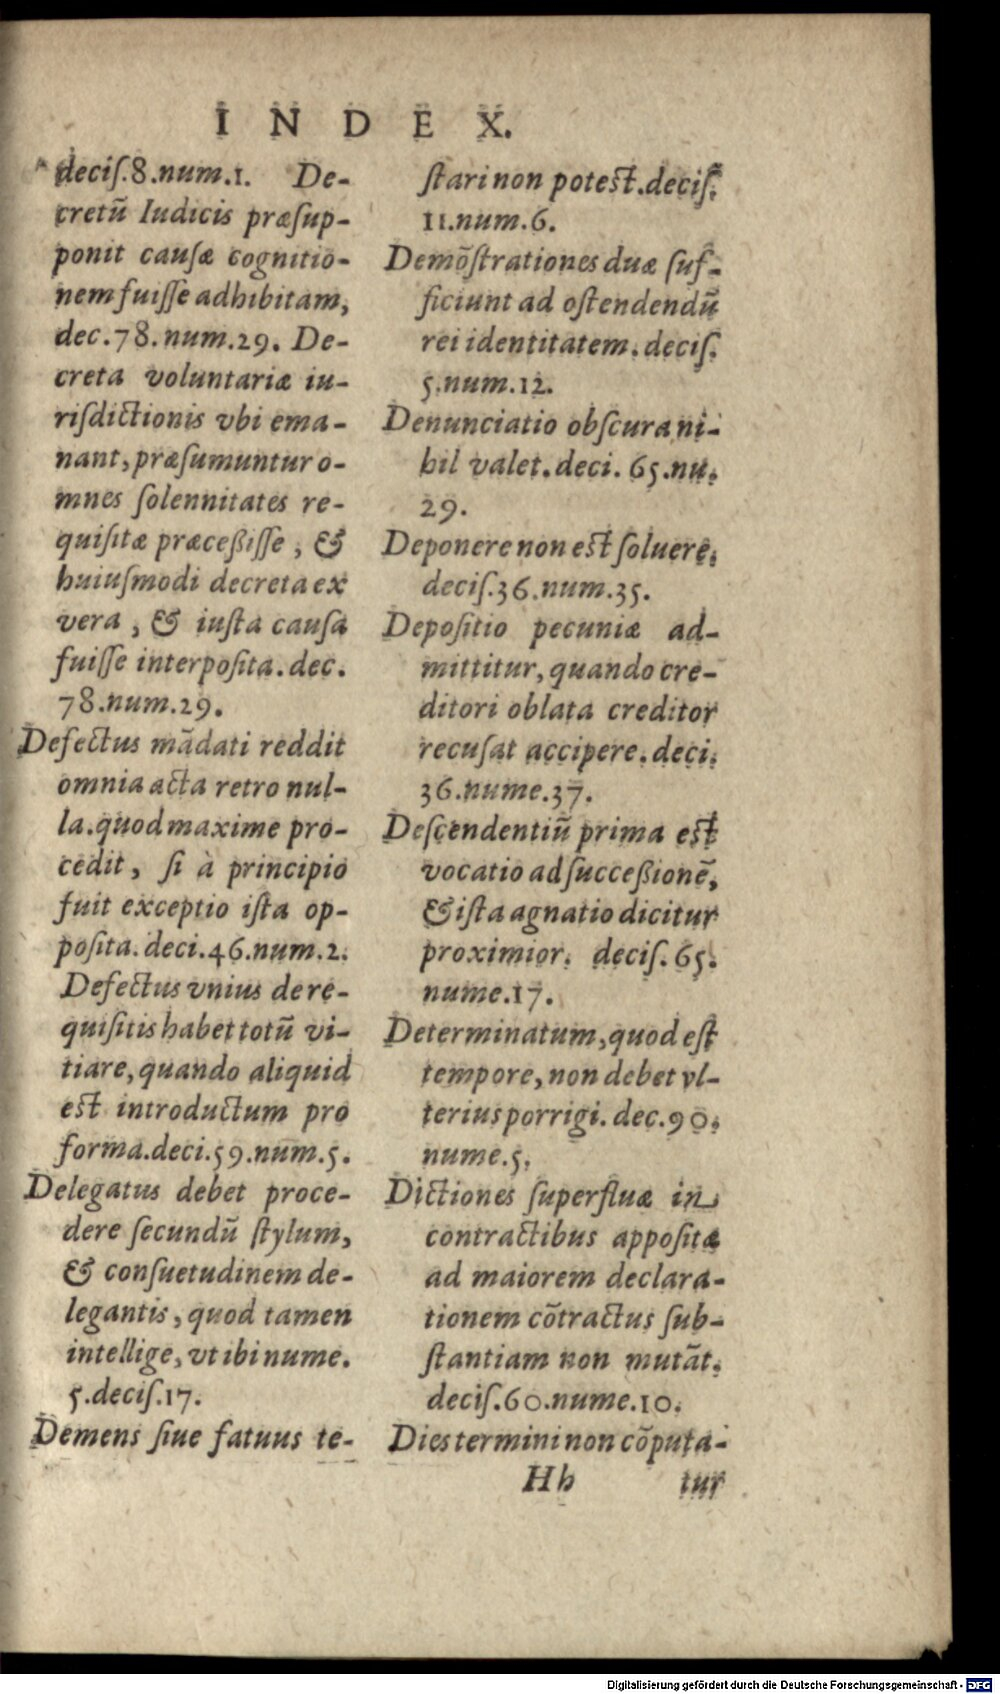 INDEX.
deciſ.8.num.1. De-
cretū Iudicis præſup-
ponit cauſæ cognitio-
nem fuiſſe adhibitam,
dec.78.num.29. De-
creta voluntariæ iu-
riſdictionis vbi ema-
nant, præſumuntur o-
mnes ſolennitates re-
quiſitæ præceßiſſe, &
huiuſmodi decreta ex
vera, & iuſta cauſa
fuiſſe interpoſita. dec.
78.num.29.
Defectus mādati reddit
omnia acta retro nul-
la. quod maxime pro-
cedit, ſi à principio
fuit exceptio iſta op-
poſita. deci.46.num.2.
Defectus vnius de re-
quiſitis habet totū vi-
tiare, quando aliquid
eſt introductum pro
forma. deci.59.num.5.
Delegatus debet proce-
dere ſecundū ſtylum,
& conſuetudinem de-
legantis, quod tamen
intellige, vt ibi nume.
5.deciſ.17.
Demens ſiue fatuus te-
ſtari non poteſt. deciſ.
11.num.6.
Demōſtrationes duæ ſuf-
ficiunt ad oſtendendū
rei identitatem. deciſ.
5.num.12.
Denunciatio obſcura ni-
hil valet. deci. 65.nu.
29.
Deponere non eſt ſoluere.
deciſ.36.num.35.
Depoſitio pecuniæ ad-
mittitur, quando cre-
ditori oblata creditor
recuſat accipere. deci.
36.nume.37.
Deſcendentiū prima eſt
vocatio ad ſucceßionē,
& iſta agnatio dicitur
proximior. deciſ.65.
nume.17.
Determinatum, quod eſt
tempore, non debet vl-
terius porrigi. dec.90.
nume.5.
Dictiones ſuperfluæ in
contractibus appoſitæ
ad maiorem declara-
tionem cōtractus ſub-
ſtantiam non mutāt.
deciſ.60.nume.10.
Dies termini non cōputa-
Hh tur
Digitalisierung gefördert durch die Deutsche Forschungsgemeinschaft - DFG